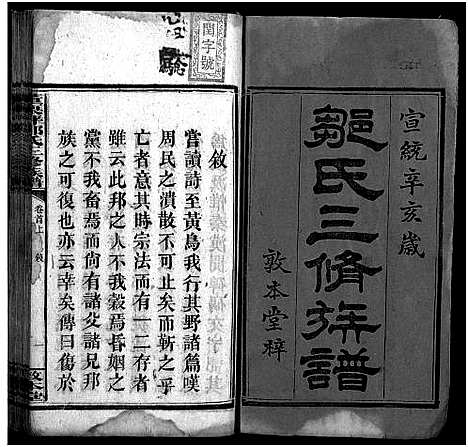 宣統辛亥歲
鄒氏三脩族譜
敦本堂梓
閏字號
敘
嘗讀詩至黃鳥我行其野諸篇嘆
周民之潰散不可止矣而斬之乎
亡者意其時宗法而有一二存者
雖云此邦之人不我穀焉昏姻之
黨不我畜焉而有諸父諸兄邦
族之可復也亦云幸矣傳曰傷於
鄒氏三修族譜
卷首上
敘
一